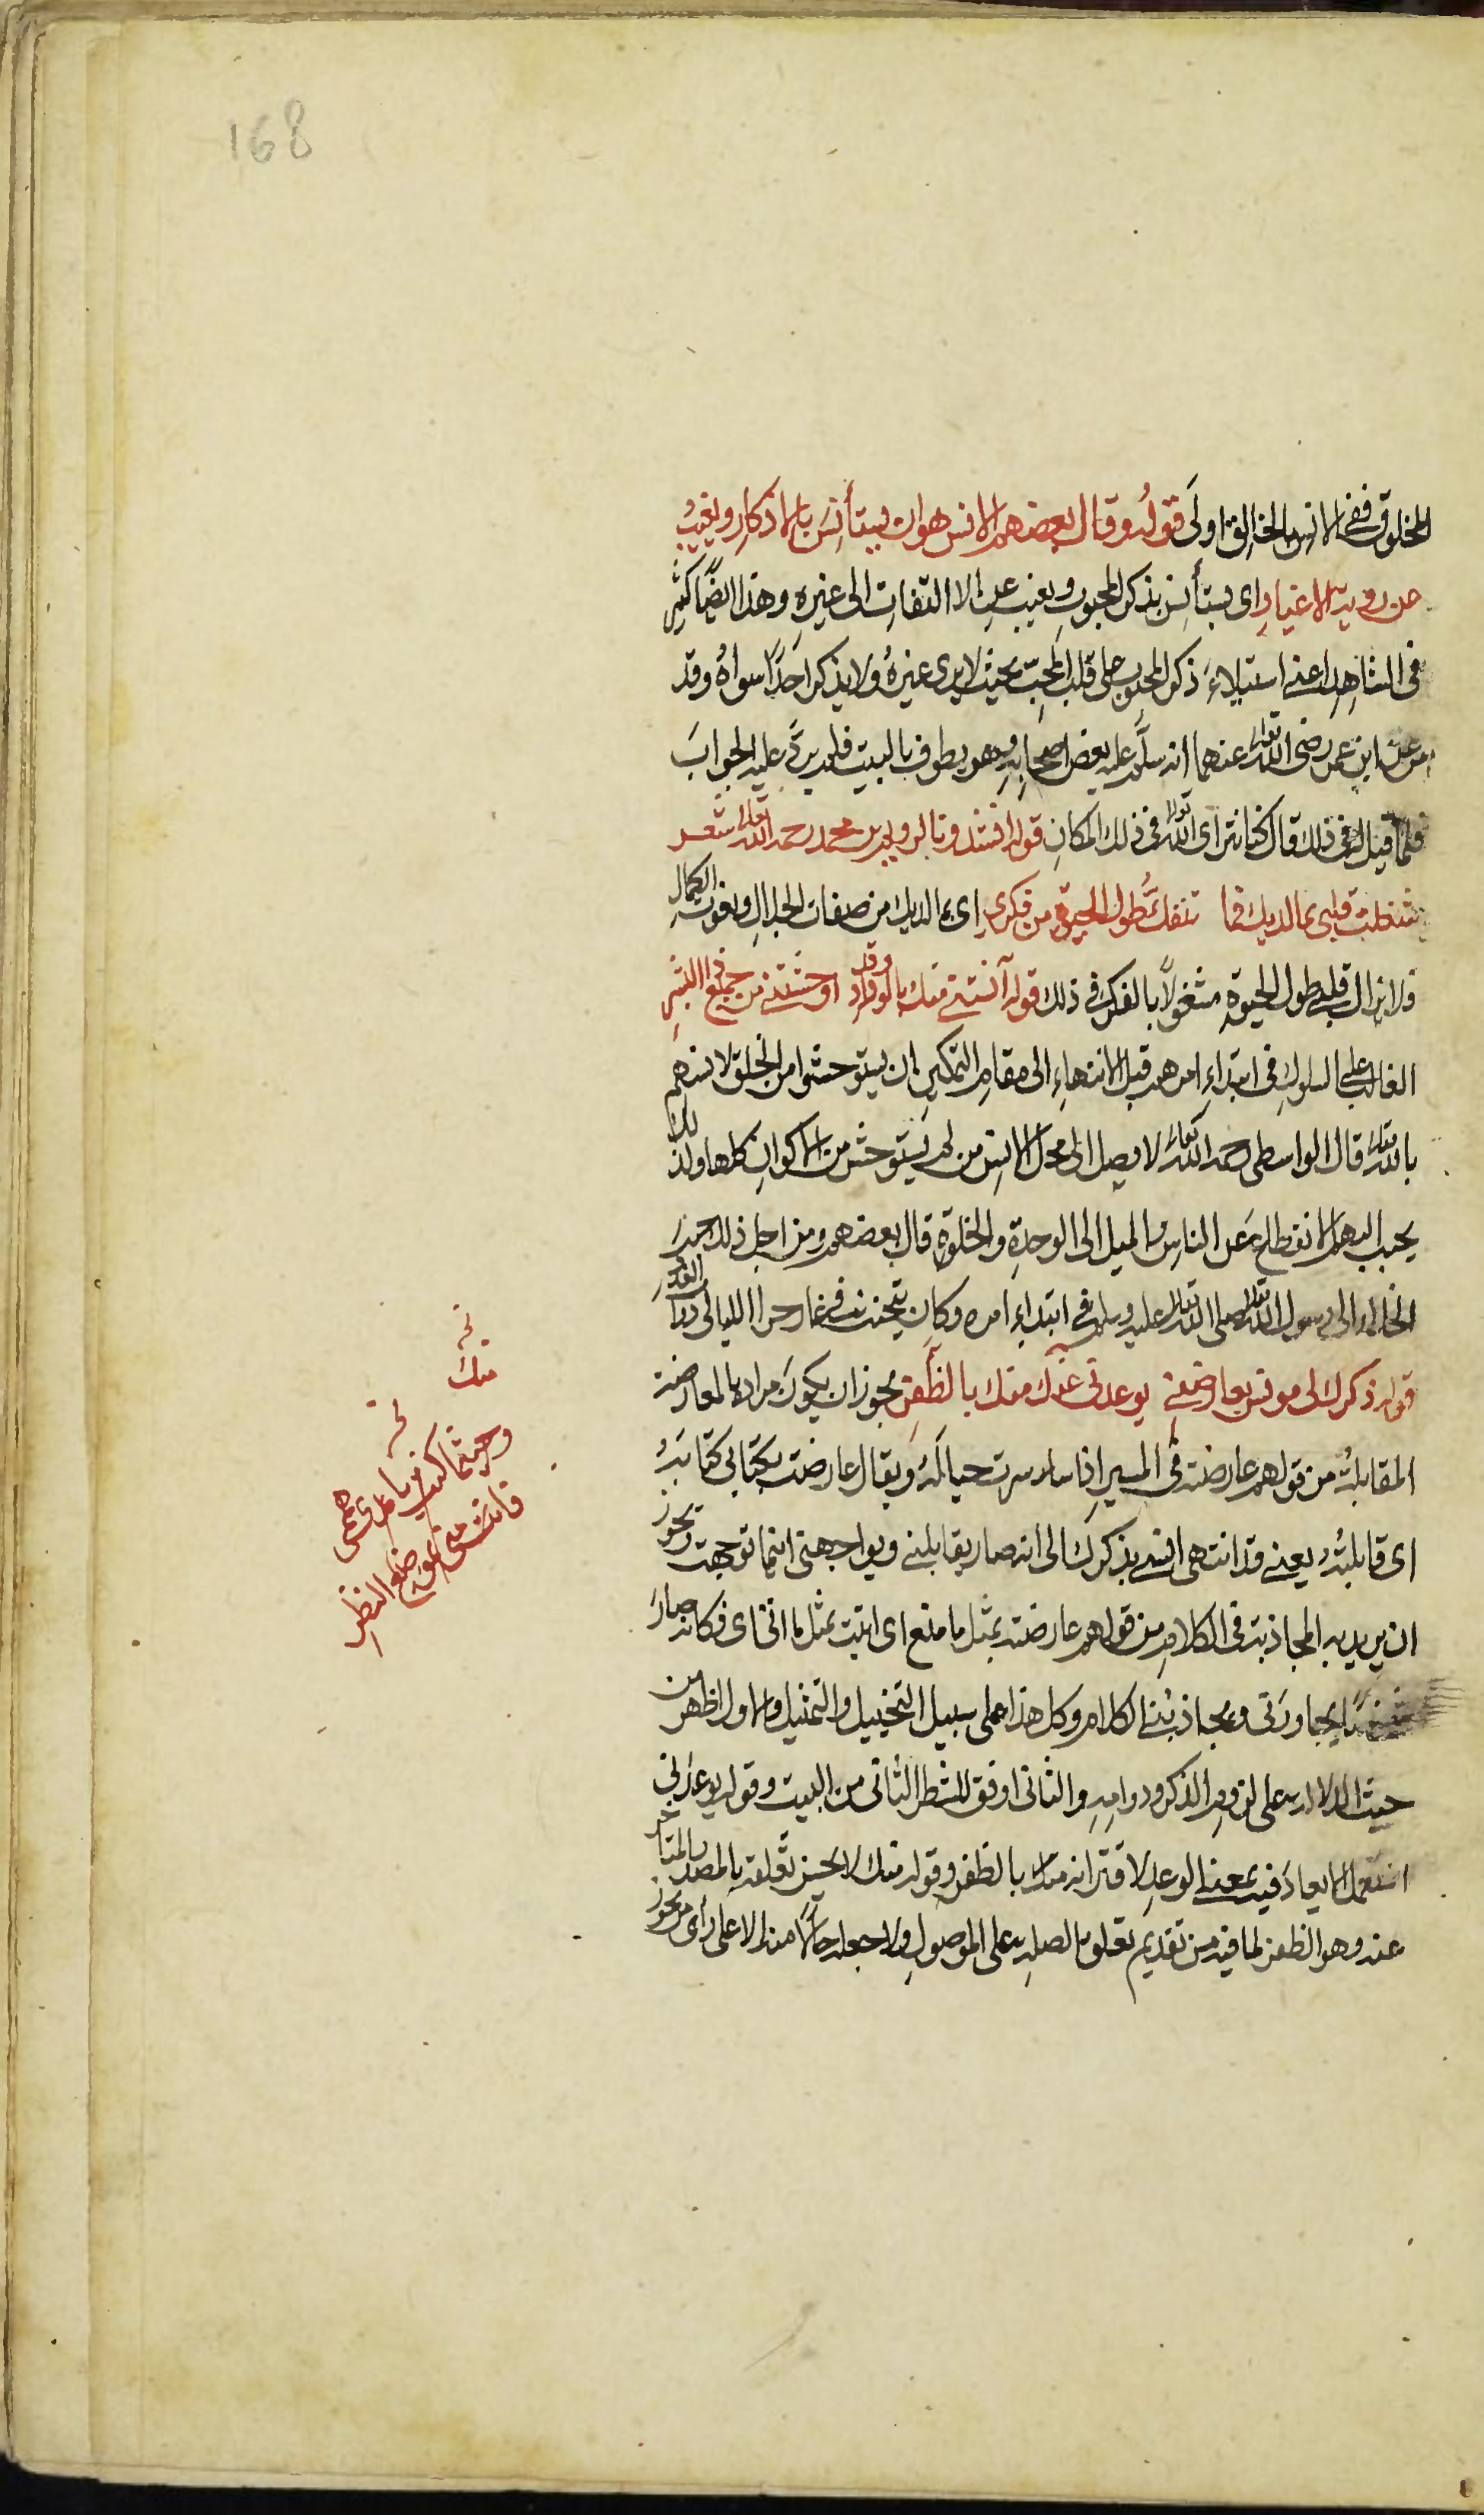 168
المخلوق ففى الانس بالخالق اولى قوله وقال بعضهم الانس هو ان يستأنس بالاذكار ويغيب
عن روية الاغيار اى يستأنس بذكر المحبوب ويغيب عن الالتفات الى غيره وهذا ايضًا كثير
فى الشاهد اعنى استيلاء ذكر المحبوب على قلب المحب بحيث لا يرى غيره ولا يذكر احدًا سواه وقد
عن ابن عمر رضى الله تعالى عنهما انه سلم عليه بعض اصحابه وهو يطوف بالبيت فلم يرد عليه الجواب
فلما قيل له فى ذلك قال كنا نتراى الله تعالى فى ذلك المكان قوله انشدونا لرويم بن محمد رحمه الله تعالى شعر
شغلت قلبى بما لديك فما تنفك طول الحيوة من فكرى اى بما لديك من صفات الجلال ونعوت الكمال
فلا يزال قلبى طول الحيوة مشغولًا بالفكر فى ذلك قوله آنستنى منك بالوداد وقد اوحشتنى من جميع ذا البشر
الغالب على السلوك فى ابتداء امرهم قبل الانتهاء الى مقام التمكين ان يستوحشوا من الخلق لانسهم
بالله تعالى قال الواسطى رحمه الله تعالى لا يصل الى محل الانس من لم يستوحش من الاكوان كلها ولذلك
يحبب اليهم الانقطاع عن الناس والميل الى الوحدة والخلوة قال بعضهم ومن اجل ذلك حبب
الخلاء الى رسول الله تعالى صلى الله تعالى عليه وسلم فى ابتداء امره وكان يتحنث فى غار حرا الليالى ذوات العدد
قوله ذكرك لى مونس يعارضنى يوعدنى عنك منك بالظفر يجوز ان يكون مراده بالمعارضة
المقابلة من قولهم عارضته فى المسير اذا سرت حياله ويقال عارضت بكتابى كتابه
اى قابلته يعنى قد انتهى انسى بذكرك الى انه صار يقابلنى ويواجهنى اينما توجهت ويجوز
ان يريد به المجاذبة فى الكلام من قولهم عارضته بمثل ما صنع اى اتيت بمثل ما اتى اى فكانه صار
يحاورنى ويجاذبنى الكلام وكل هذا على سبيل التخييل والتمثيل والاول اظهر من
حيث الدلالة على لزوم الذكر ودوامه والثانى اوفق للشطر الثانى من البيت وقوله يوعدنى
استعمل الايعاد فيه بمعنى الوعد لاقترانه منك بالظفر وقوله منك لا يحسن تعلقه بالمصدر المتاخر
عنه وهو الظفر لما فيه من تقديم تعلق الصلة على الموصول ولا جعله حالًا منه الا على راى من يجوز
نخه
منك
نخه
وحيثما كنت يا مدى هممى
فانت منى بموضع النظر